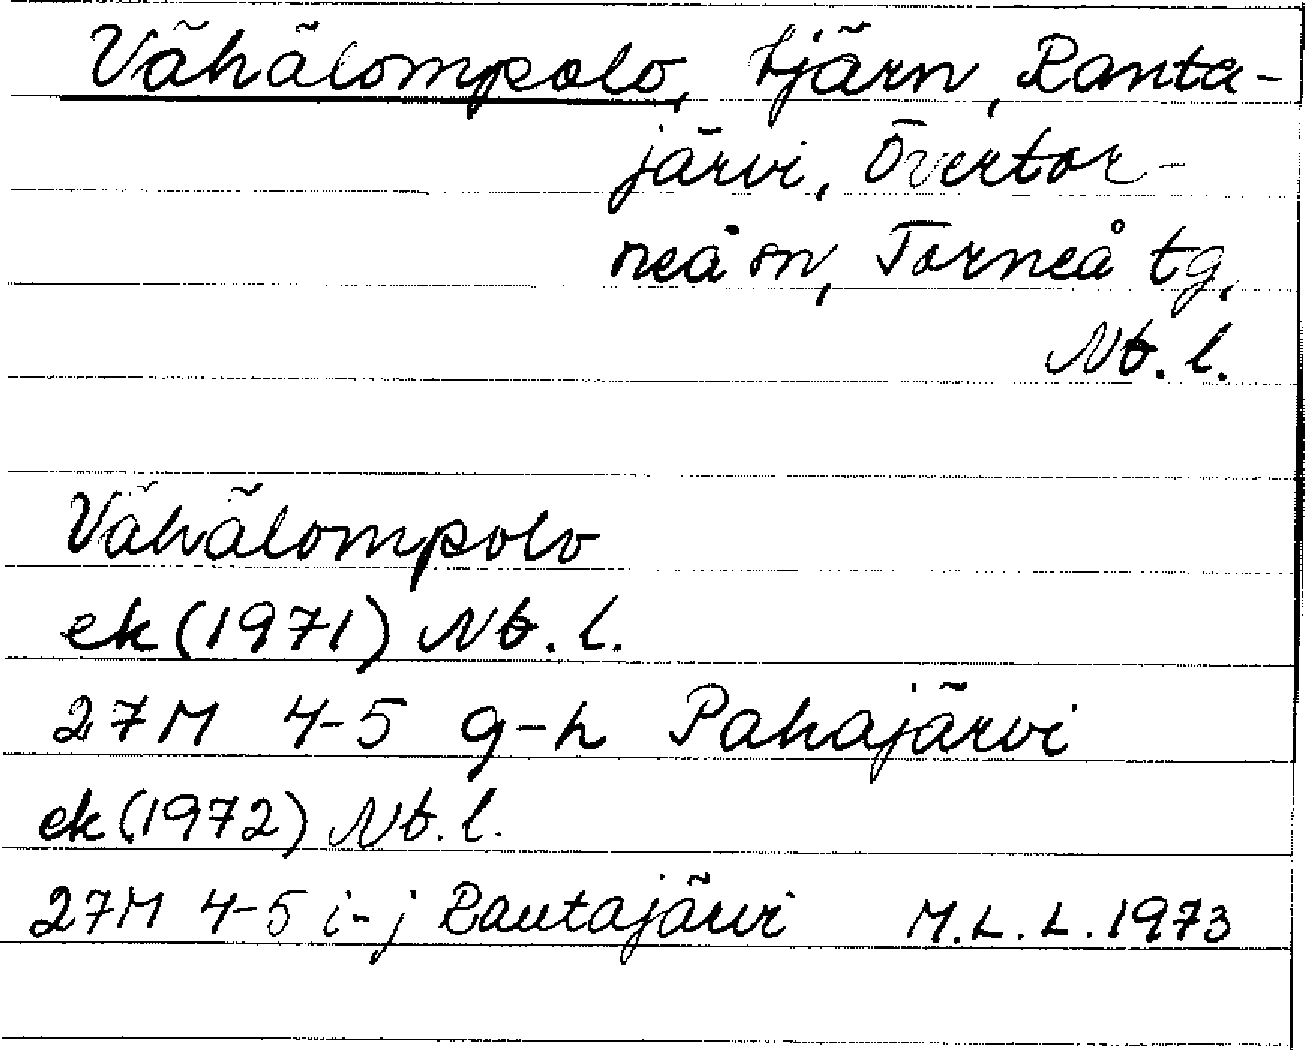 Vähälompolo, tjärn, Ranta-
järvi, Övertor-
neå sn, Torneå tg,
Nb. l.
Vähälompolo
ek (1971) Nb. l.
27M 4-5 g-h Pahajärvi
ek (1972) Nb. l.
27M 4-5 i-j Rantajärvi M.L.L. 1973